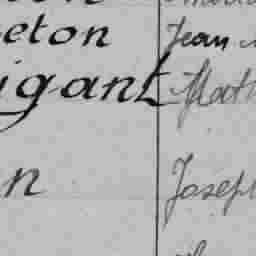 eton Jean
igant Math
n Joseph